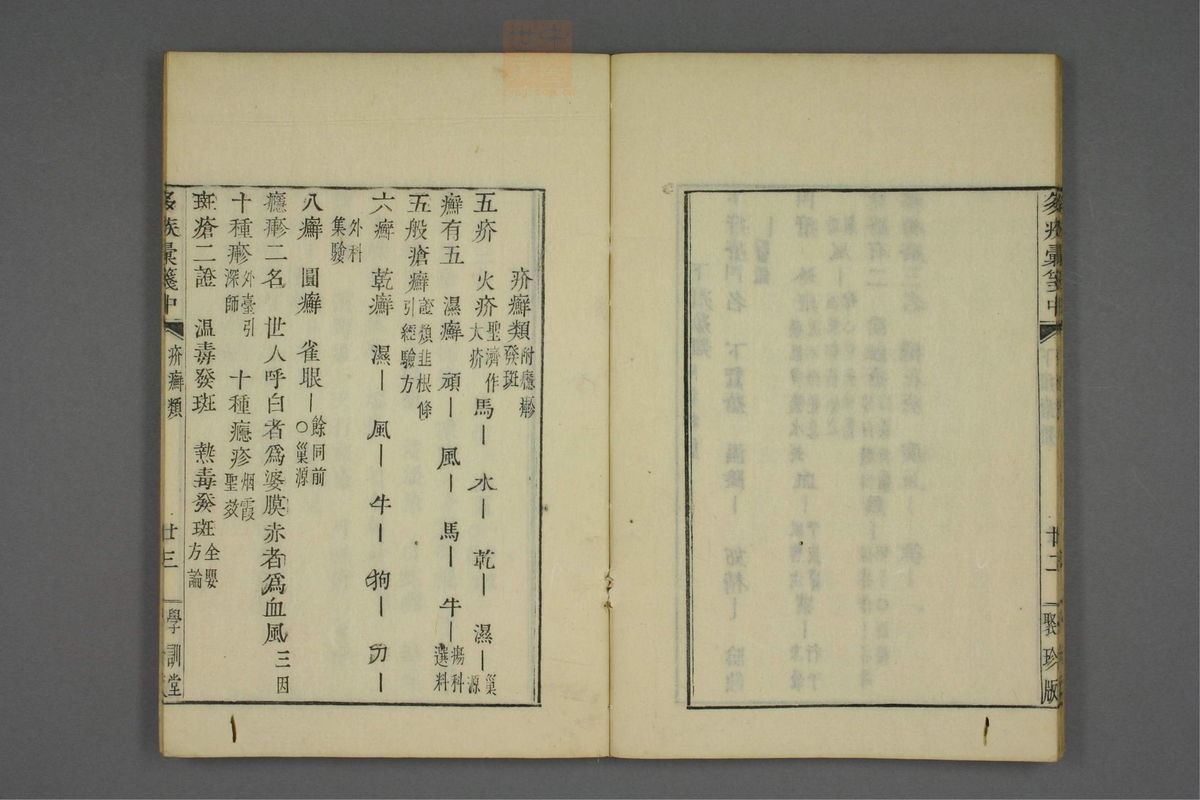 疹疾彙箋中
廿二
聚珍版
疥癬類 附癮𤺋 發斑
五疥 火疥 聖濟作大疥 馬｜ 水｜ 乾｜ 濕｜ 巢源
癬有五 濕癬 頑｜ 風｜ 馬｜ 牛｜ 瘍科選料
五般瘡癬 證類韭根條引經驗方
六癬 乾癬 濕｜ 風｜ 牛｜ 狗｜ 刃｜
外科集驗
八癬 圓癬 雀眼｜ 餘同前 ○巢源
癮疹二名 世人呼白者爲婆膜赤者爲血風 三因
十種𤺋 外臺引深師 十種癮疹 烟霞聖效
斑瘡二證 温毒發斑 熱毒發斑 全嬰方論
彙箋中
疥癬類
廿三
學訓堂